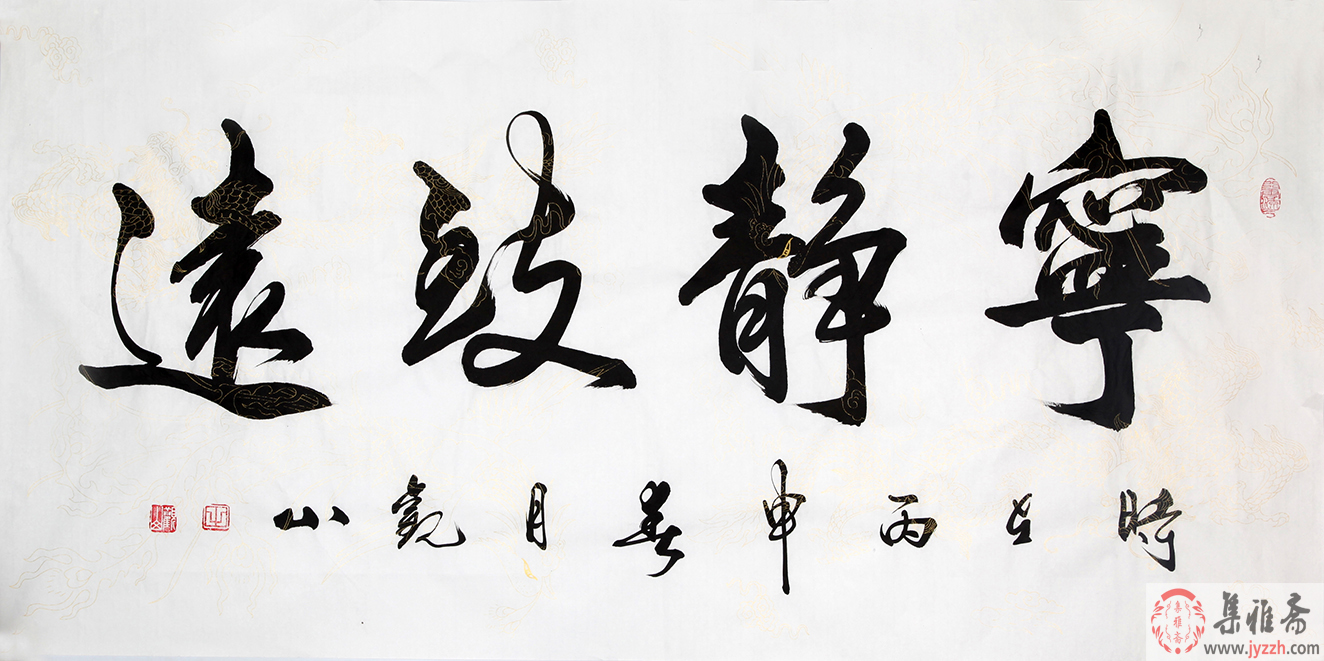 寧靜致遠
時在丙申春月觀山
集雅斋
www.jyzzh.com